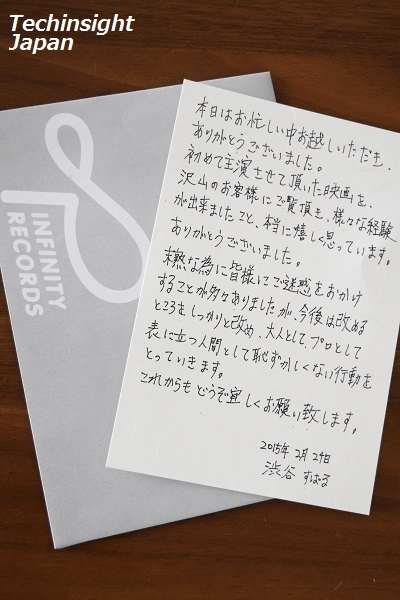 Techinsight
Japan
INFINITY
RECORDS
本日はお忙しい中お越しいただき、
ありがとうございました。
初めて主演させて頂いた映画を、
沢山のお客様にご覧頂き、様々な経験
が出来ましたこと、本当に嬉しく思っています。
ありがとうございました。
未熟な為に皆様にご迷惑をおかけ
することが多々ありましたが、今後は改める
ところをしっかりと改め、大人として、プロとして
表に立つ人間として恥ずかしくない行動を
とっていきます。
これからもどうぞ宜しくお願い致します。
2015年2月24日
渋谷 すばる